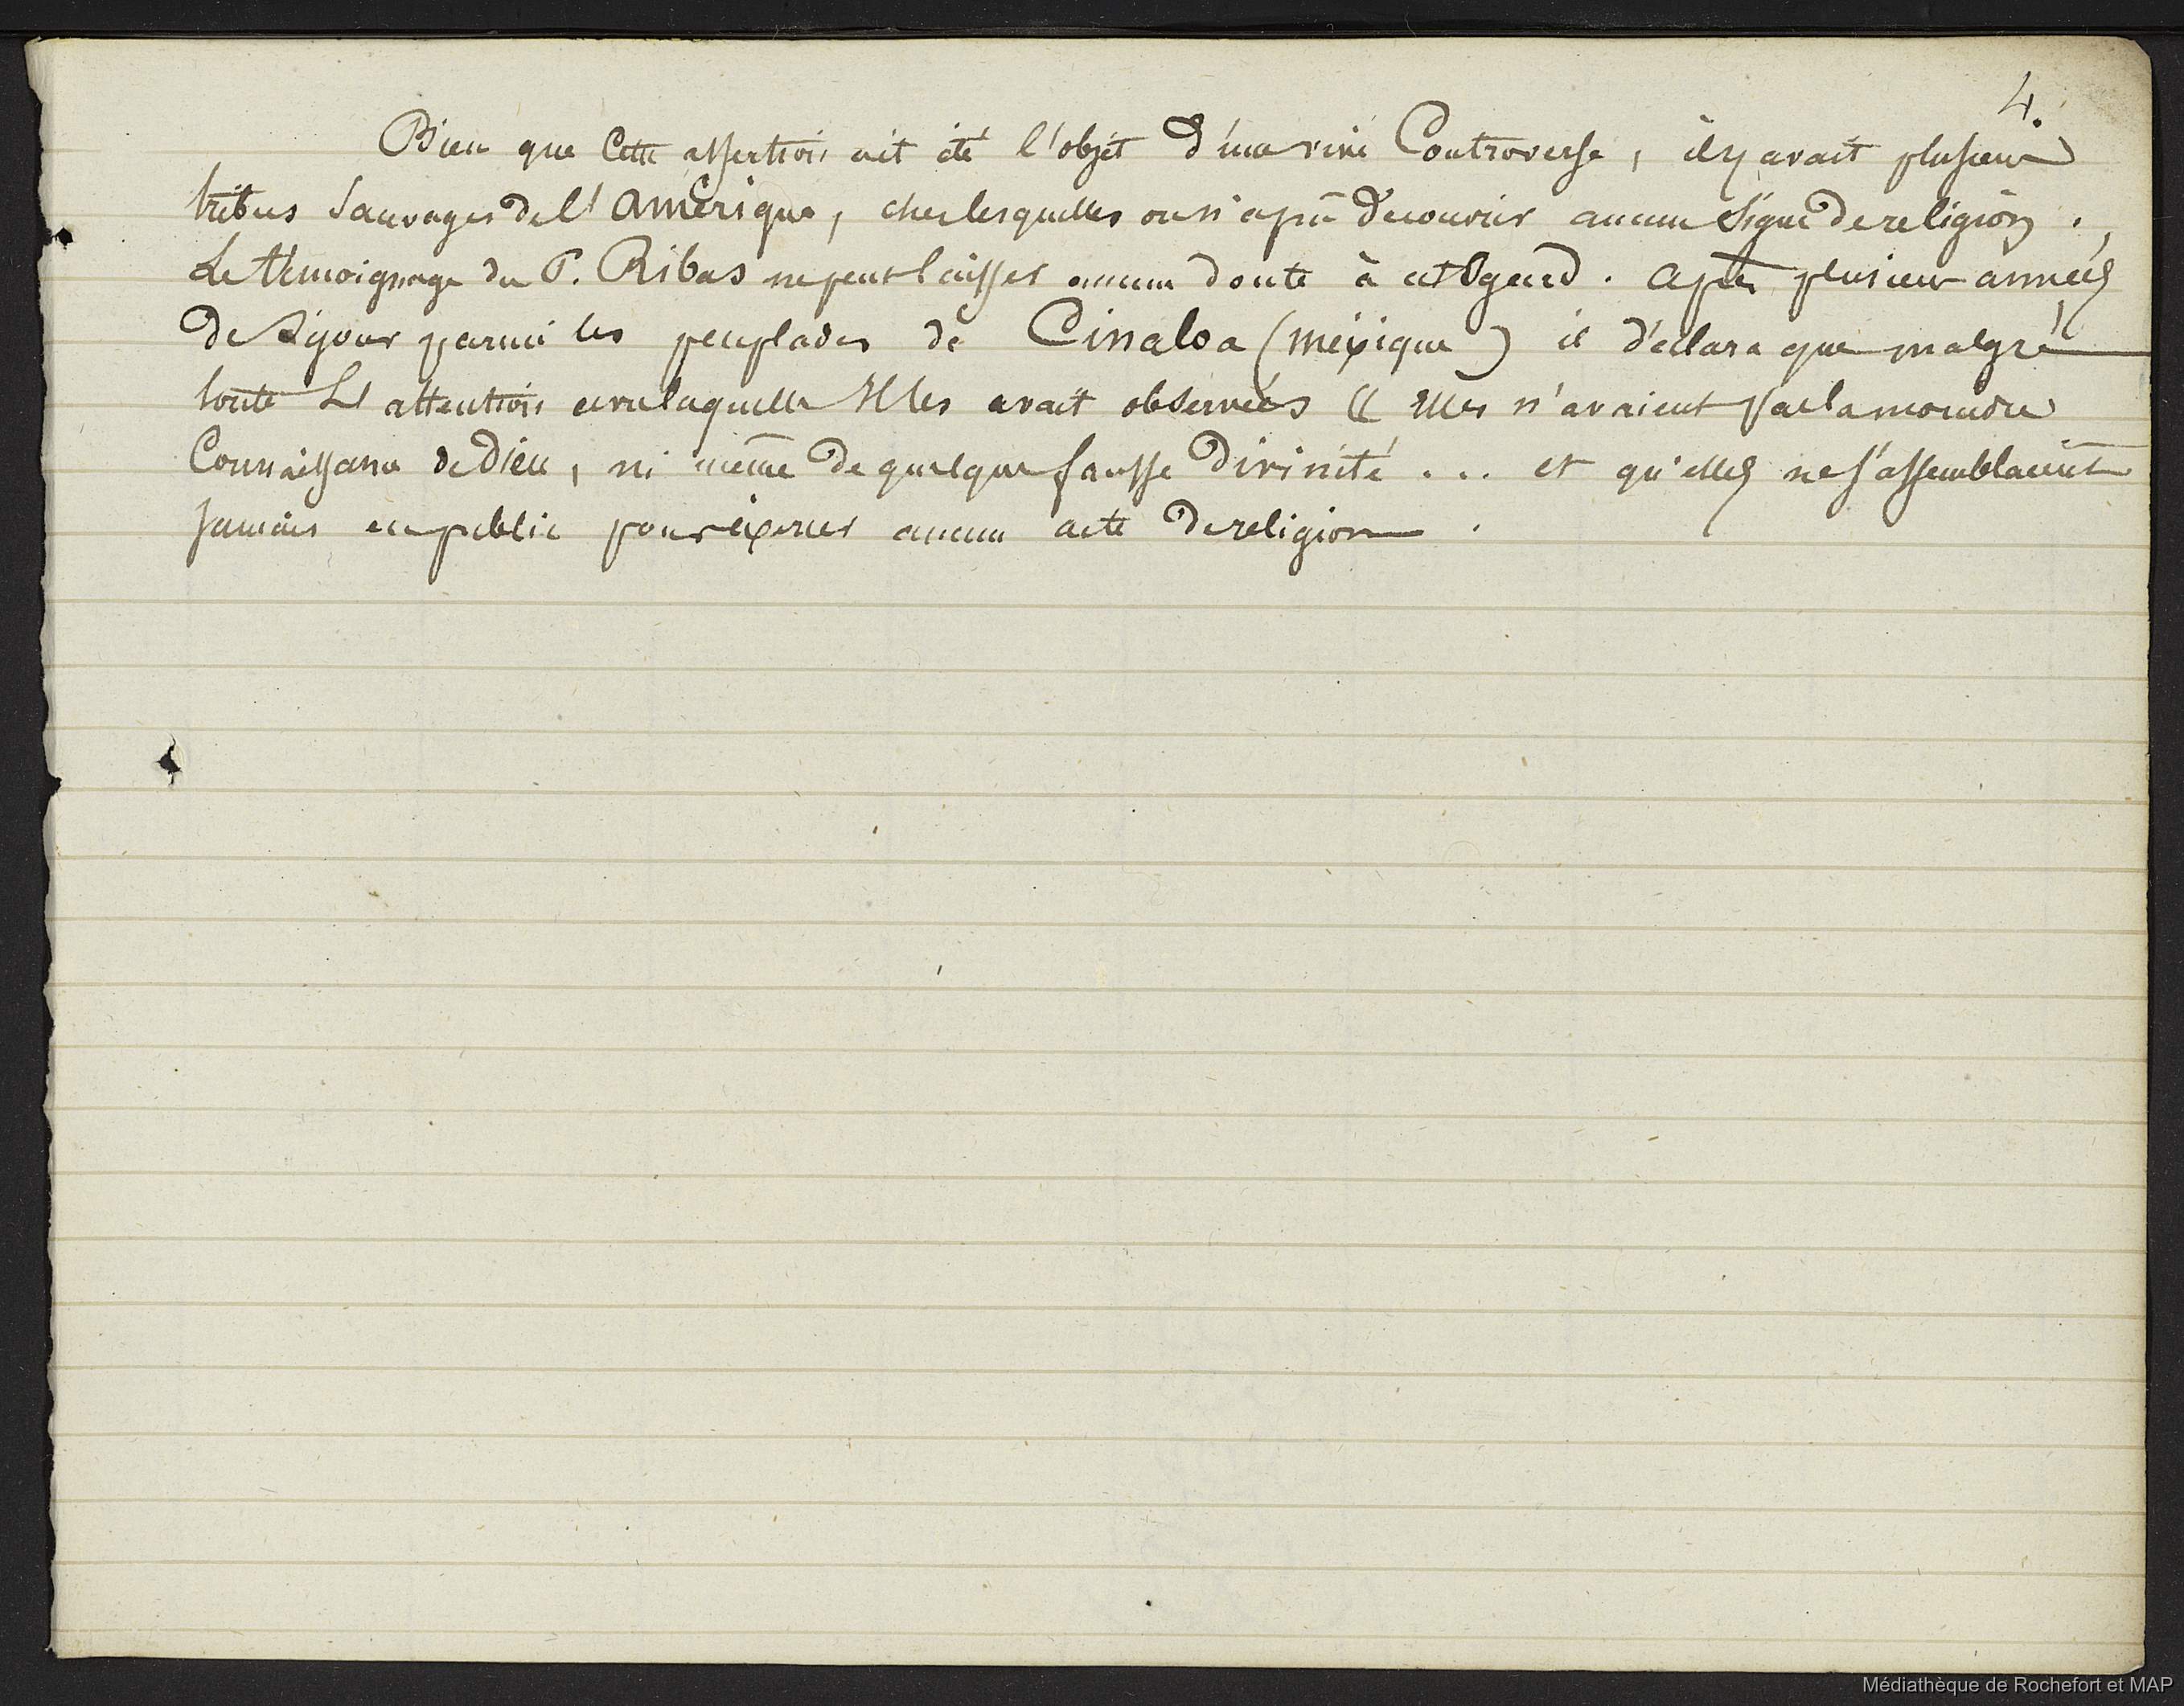 4.
Bien que Cette assertion ait été l'objet d'une vive Controverse, il y avait plusieurs
tribus Sauvages de l'Amérique, chez lesquelles on n'a pû découvrir aucun signe de religion.
Le témoignage du P. Ribas ne peut laisser aucun doute à cet égard. après plusieurs années
de séjour parmi les peuplades de Cinaloa (méxique) il déclara que malgré
toute L'attention avec laquelle Il les avait observées « Elles n'avaient pas la moindre
Connaissance de Dieu, ni même de quelque fausse Divinité ... et qu'elles ne s'assemblaient
jamais en public pour éxercer aucun acte de religion.
Médiathèque de Rochefort et MAP